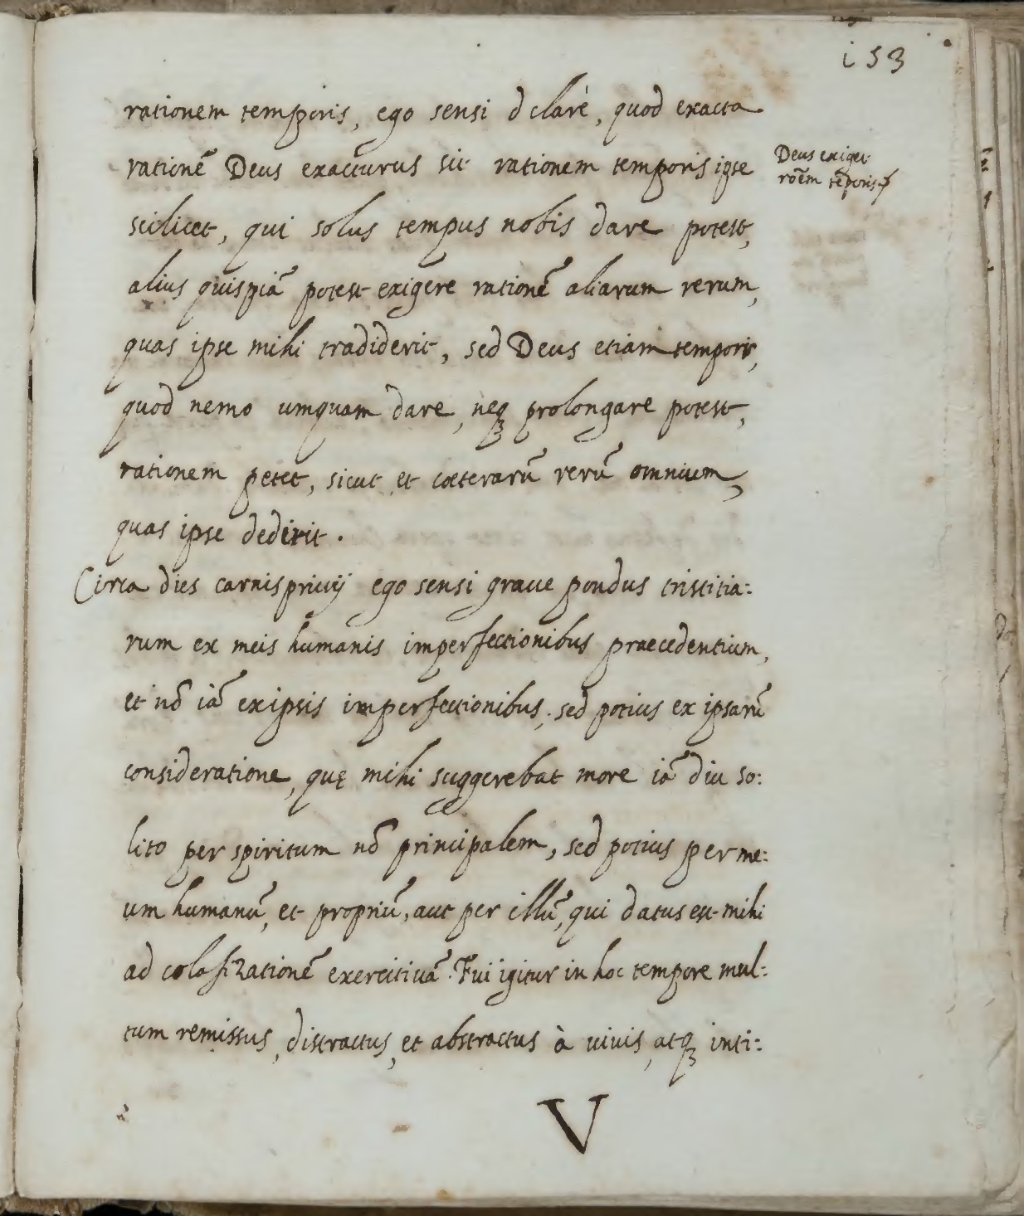 153
rationem temporis, ego sensi d clarè, quod exacta
rationẽ Deus exacturus sit rationem temporis ipse
Deus exiget
rõem tẽporis
scilicet, qui solus tempus nobis dare potest,
alius quispiã potest exigere rationẽ aliarum rerum,
quas ipse mihi tradiderit, sed Deus etiam temporis,
quod nemo umquam dare, neqꝫ prolongare potest,
rationem petet, sicut et cœterarũ rerũ omnium,
quas ipse dederit.
Circa dies carnisprivij ego sensi graue pondus tristitia:
rum ex meis humanis imperfectionibus praecedentium,
et nõ iã ex ipsis imperfectionibus, sed potius ex ipsarũ
consideratione, quę mihi suggerebat more iã diu so:
lito per spiritum nõ principalem, sed potius per me:
um humanũ, et propriũ, aut per illũ, qui datus est mihi
ad colafizationẽ exercitiuã. Fui igitur in hoc tempore mul:
tum remissus, distractus, et abstractus à uiuis, atqꝫ inti:
V